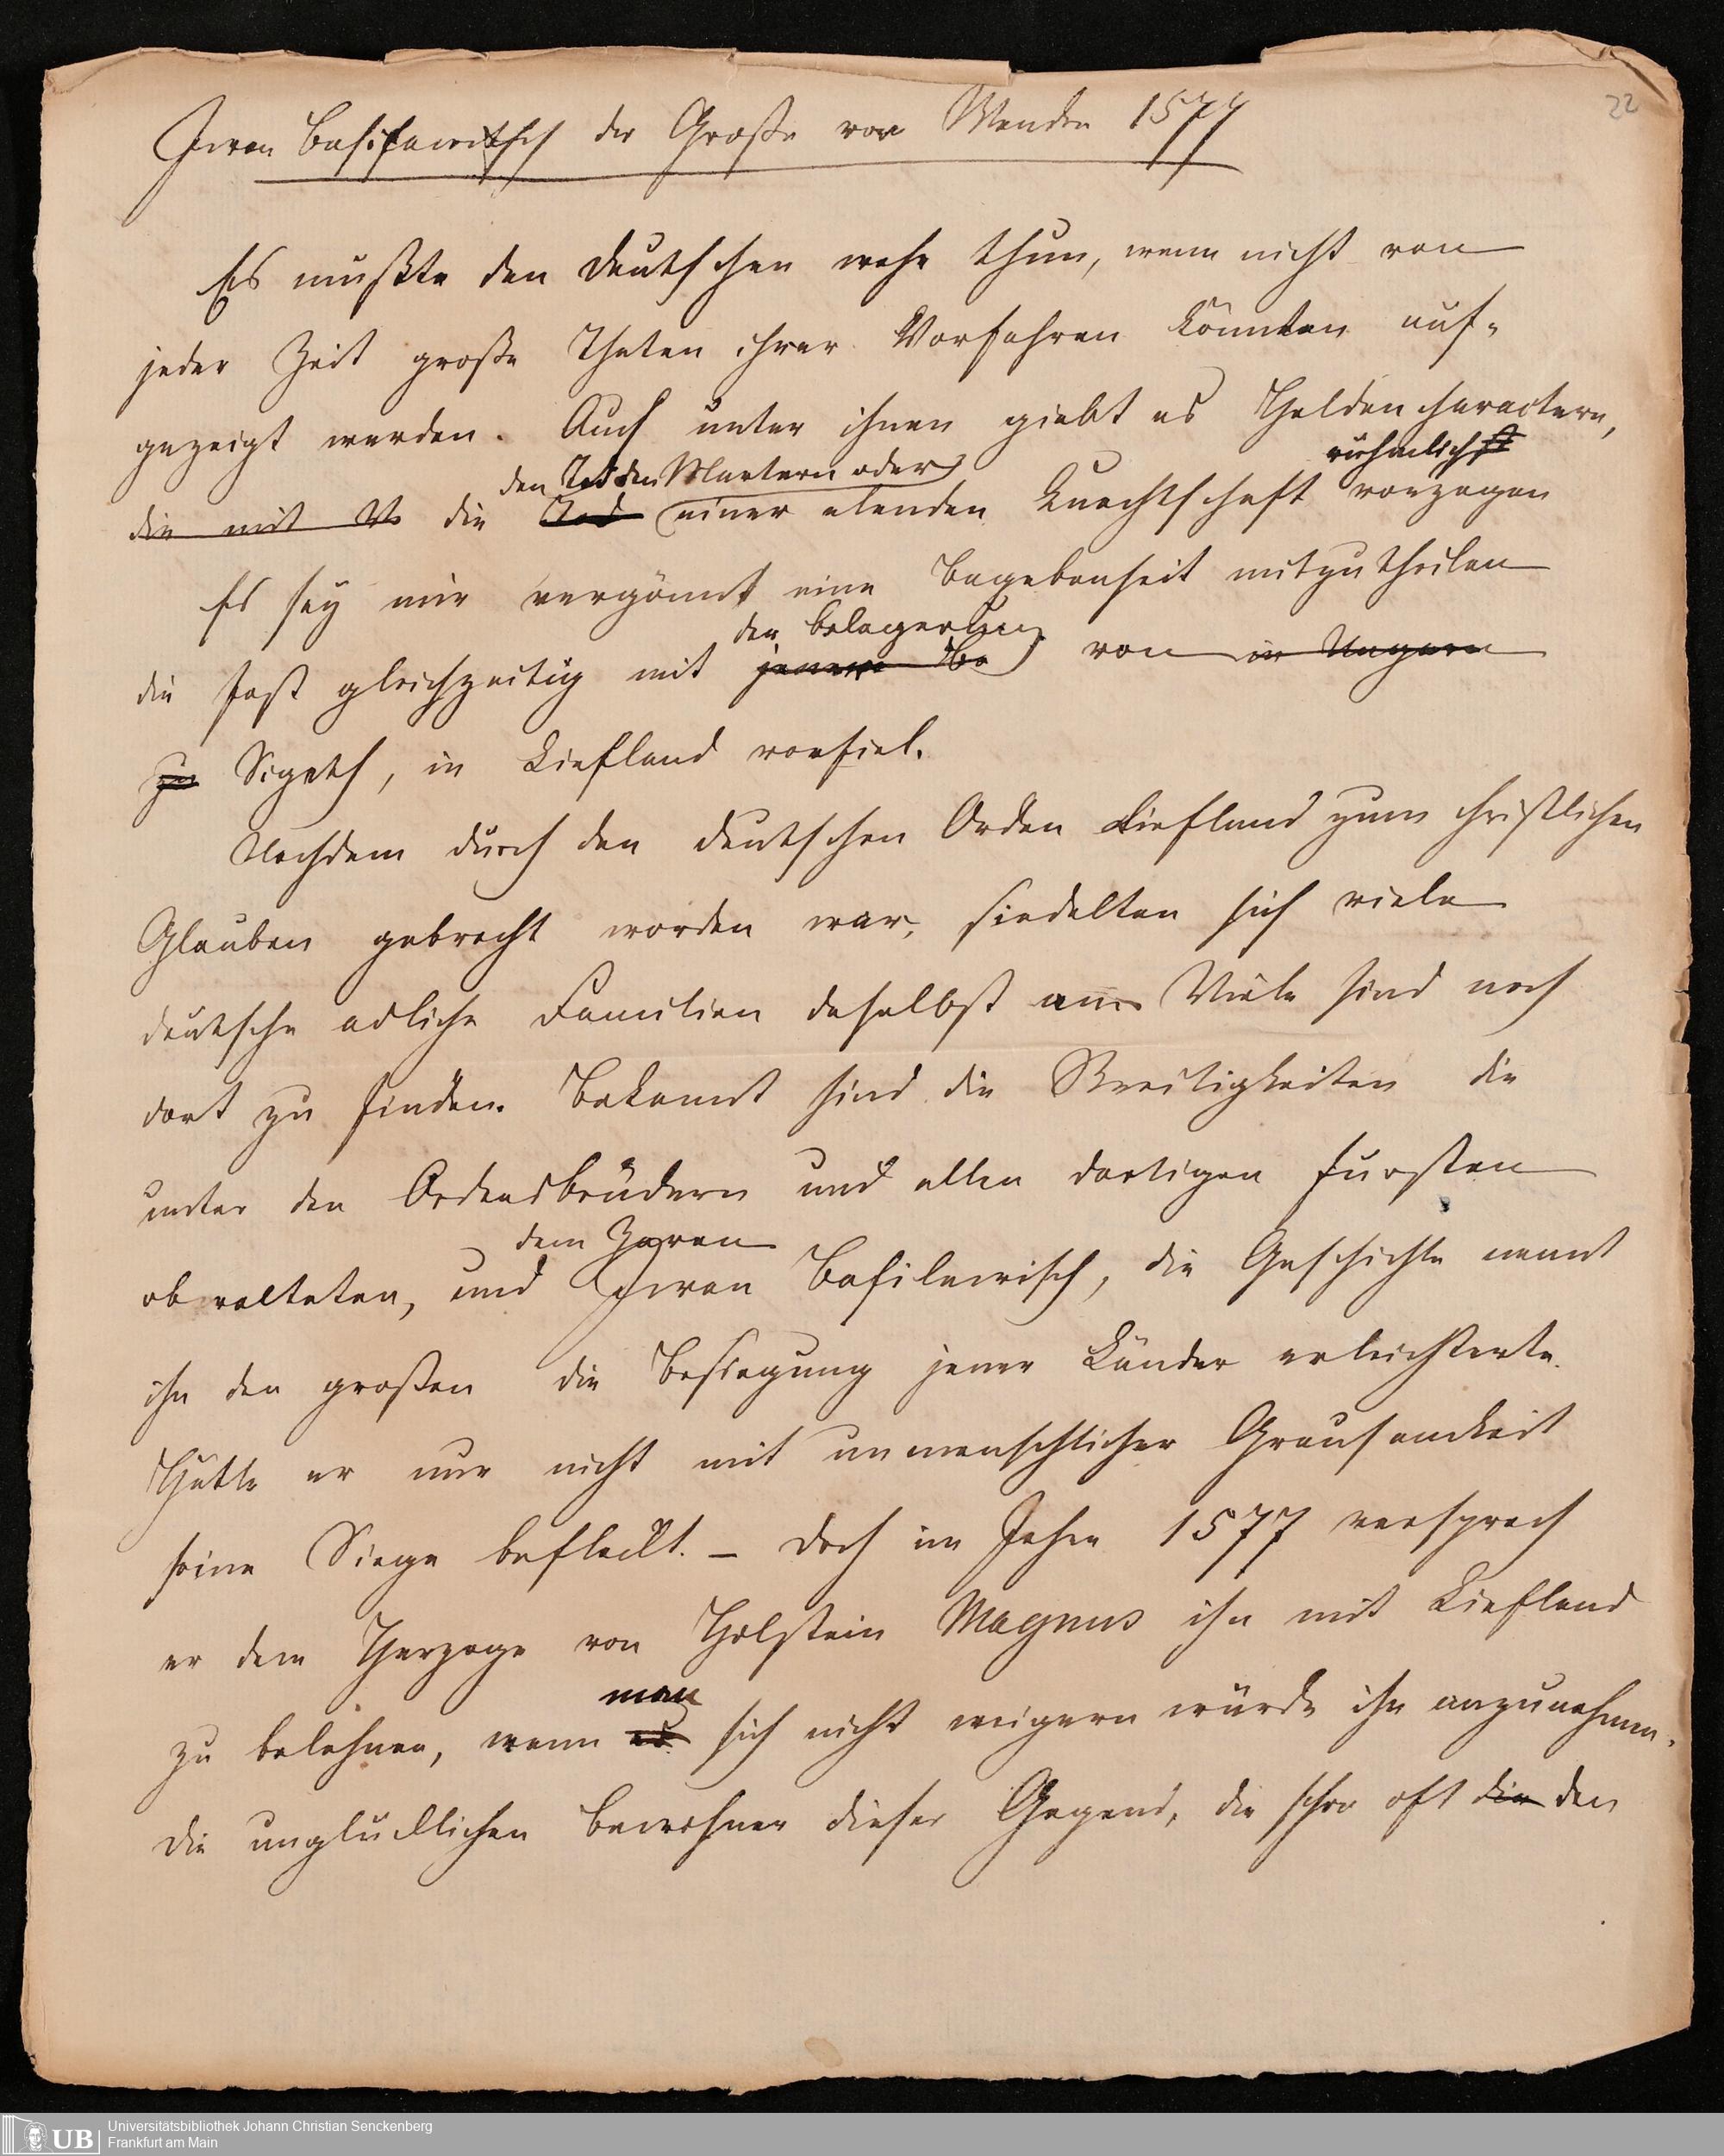 22
Iwan Basilewitsch der Große vor Wenden 1577
Es mußte den Deutschen wehe thun, wenn nicht von
jeder Zeit große Thaten ihrer Vorfahren könnten auf-
gezeigt werden. Auch unter ihnen giebt es Heldencharactere,
den Tod den Martern oder rühmlichst
die mit V. die Tod einer elenden Knechtschaft vorzogen
Es sey mir vergönnt eine Begebenheit mitzutheilen
der Belagerung
die fast gleichzeitig mit jener Be von in Ungarn
zu Sigeth, in Liefland vorfiel.
Nachdem durch den deutschen Orden Liefland zum christlichen
Glauben gebracht worden war, siedelten sich viele
deutsche adliche Familien daselbst an. Viele sind noch
dort zu finden. Bekannt sind die Streitigkeiten die
unter den Ordensbrüdern und allen dortigen Fürsten
dem Zaren
obwalteten, und Iwan Basilewisch, die Geschichte nennt
ihn den großen die Besiegung jener Länder erleichterte.
Hätte er nur nicht mit unmenschlicher Grausamkeit
seine Siege befleckt. – Doch im Jahre 1577 versprach
er dem Herzoge von Holstein Magnus ihn mit Liefland
man
zu belehnen, wenn es sich nicht weigern würde ihn anzunehmen.
Die unglücklichen Bewohner dieser Gegend, die schon oft die den
UB Universitätsbibliothek Johann Christian Senckenberg
Frankfurt am Main